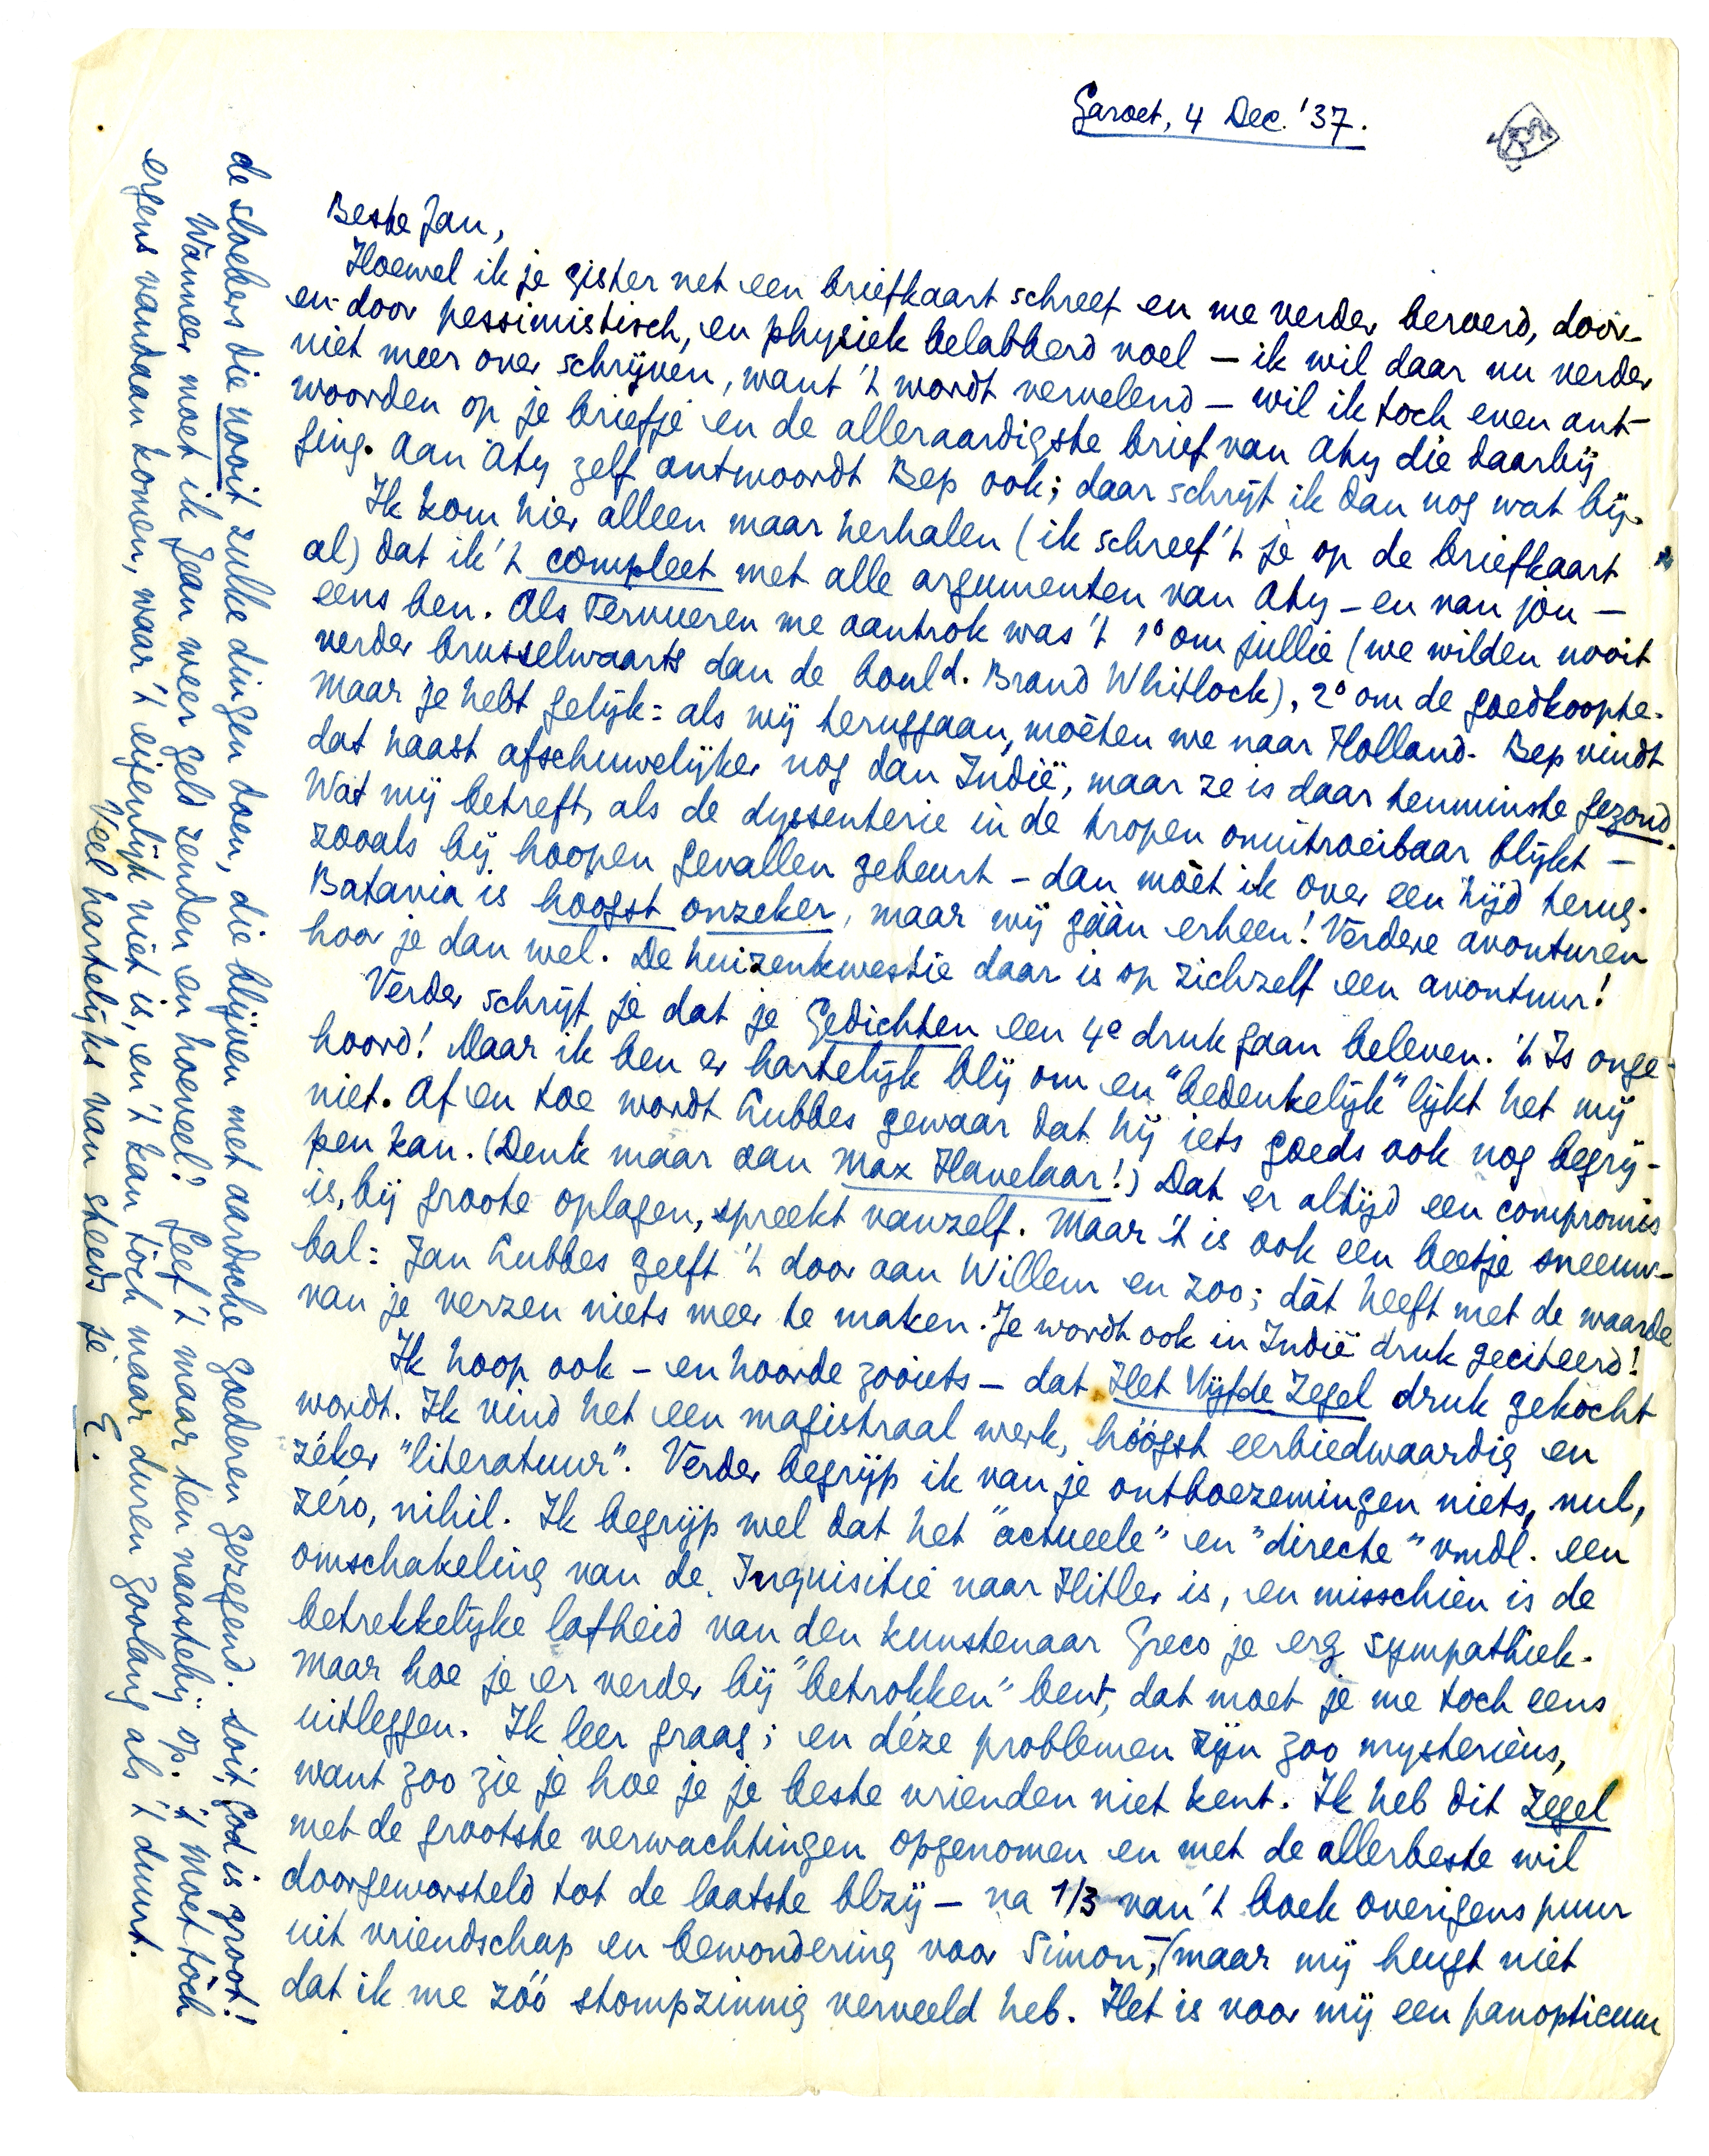 Garoet, 4 Dec. '37.
Beste Jan,
Hoewel ik je gister net een briefkaart schreef en me verder beroerd, door-
en-door pessimistisch, en physiek belabberd voel — ik wil daar nu verder
niet meer over schrijven, want 't wordt vervelend — wil ik toch even ant-
woorden op je briefje en de alleraardigste brief van Aty die daarbij
ging. Aan Aty zelf antwoordt Bep ook; daar schrijf ik dan nog wat bij.
Ik kom hier alleen maar herhalen (ik schreef 't je op de briefkaart
al) dat ik 't compleet met alle argumenten van Aty – en van jòu –
eens ben. Als Tervueren me aantrok was 't 1° om jullie (we wilden nooit
verder brusselwaarts dan de bould. Brand Whitlock), 2° om de goedkoopte.
Maar je hebt gelijk: als wij teruggaan, mòeten we naar Holland. Bep vindt
dat haast afschuwelijker nog dan Indië, maar ze is daar tenminste gezond.
Wat mij betreft, als de dyssenterie in de tropen onuitroeibaar blijkt —
zooals bij hoopen gevallen gebeurt – dan mòet ik over een tijd terug.
Batavia is hoogst onzeker, maar wij gáán erheen! Verdere avonturen
hoor je dan wel. De huizenkwestie daar is op zichzelf een avontuur!
Verder schrijf je dat je Gedichten een 4e druk gaan beleven. 't Is onge-
hoord! Maar ik ben er hartelijk blij om en "bedenkelijk" lijkt het mij
niet. Af en toe wordt Lubbes gewaar dat hij iets goeds ook nog begrij-
pen kan. (Denk maar aan Max Havelaar!) Dat er altijd een compromis
is, bij groote oplagen, spreekt vanzelf. Maar 't is ook een beetje sneeuw-
bal: Jan Lubbes geeft 't door aan Willem en zoo; dàt heeft met de waarde
van je verzen niets meer te maken. Je wordt ook in Indië druk geciteerd!
Ik hoop ook – en hoorde zooiets – dat Het Vijfde Zegel druk gekocht
wordt. Ik vind het een magistraal werk, hóógst eerbiedwaardig en
zéker "literatuur". Verder begrijp ik van je ontboezemingen niets, nul,
zéro, nihil. Ik begrijp wel dat het "actueele" en "directe" vmdl. een
omschakeling van de Inquisitie naar Hitler is, en misschien is de
betrekkelijke lafheid van den kunstenaar Greco je erg sympathiek.
Maar hoe je er verder bij "betrokken" bent, dat moet je me toch eens
uitleggen. Ik leer graag; en déze problemen zijn zoo mysteriëus,
want zoo zie je hoe je je beste vrienden niet kent. Ik heb dit Zegel
met de grootste verwachtingen opgenomen en met de allerbeste wil
doorgeworsteld tot de laatste blzij — na 1/3 van 't boek overigens puur
uit vriendschap en bewondering voor Simon, — maar mij heugt niet
dat ik me zóó stompzinnig verveeld heb. Het is voor mij een panopticum
de sloebers die nooit zulke dingen doen, die blijven met aardsche goederen gezegend. Soit, God is groot!
Wanneer moet ik Jean weer geld zenden en hoeveel? Geef 't maar ten naastebij op. 't Moet tòch
ergens vandaan komen, waar 't eigenlijk niet is, en 't kan tòch maar duren zoolang als 't duurt.
Veel hartelijks van steeds je E.